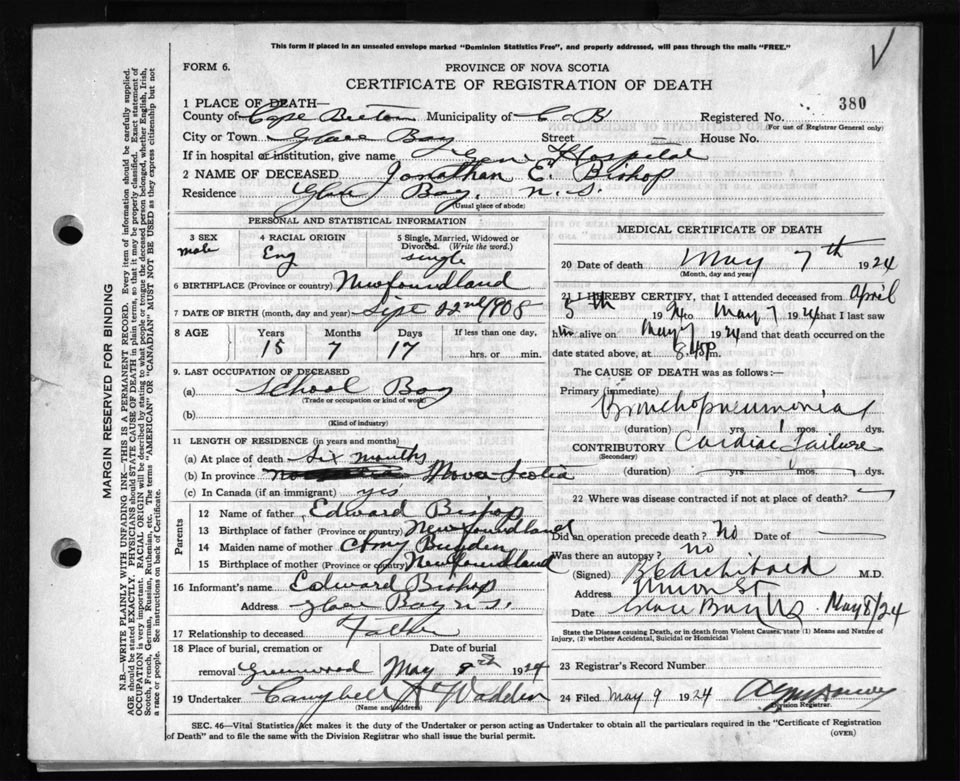 This form if placed in an unsealed envelope marked "Dominion Statistics Free", and properly addressed, will pass through the mails "FREE."
FORM 6.
PROVINCE OF NOVA SCOTIA
CERTIFICATE OF REGISTRATION OF DEATH
380
1 PLACE OF DEATH—
County of Cape Breton Municipality of C B Registered No.
(For use of Registrar General only)
City or Town Glace Bay Street House No.
If in hospital or institution, give name Gen Hospital
2 NAME OF DECEASED Jonathan E. Bishop
Residence Glace Bay, N.S.
(Usual place of abode)
PERSONAL AND STATISTICAL INFORMATION
3 SEX male
4 RACIAL ORIGIN Eng
5 Single, Married, Widowed or Divorced. (Write the word.) single
6 BIRTHPLACE (Province or country) Newfoundland
7 DATE OF BIRTH (month, day and year) Sept 22nd 1908
8 AGE Years Months Days If less than one day,
15 7 17 hrs. or min.
9. LAST OCCUPATION OF DECEASED
(a) School Boy
(Trade or occupation or kind of work)
(b)
(Kind of industry)
11 LENGTH OF RESIDENCE (in years and months)
(a) At place of death six months
(b) In province Nova Scotia
(c) In Canada (if an immigrant) yes
Parents
12 Name of father Edward Bishop
13 Birthplace of father (Province or country) Newfoundland
14 Maiden name of mother Amy Bugden
15 Birthplace of mother (Province or country) Newfoundland
16 Informant's name Edward Bishop
Address Glace Bay N.S.
17 Relationship to deceased Father
18 Place of burial, cremation or removal Greenwood
Date of burial May 9th 1924
19 Undertaker Campbell & Wadden
(Name and address)
MEDICAL CERTIFICATE OF DEATH
20 Date of death May 7th 1924
(Month, day and year)
21 I HEREBY CERTIFY, that I attended deceased from April
5th 1924 to May 7 1924 that I last saw
him alive on May 7 1924 and that death occurred on the
date stated above, at 8.45 p.m.
The CAUSE OF DEATH was as follows:—
Primary (immediate)
Bronchopneumonia
(duration) yrs. mos. dys.
CONTRIBUTORY Cardiac Failure
(Secondary)
(duration) yrs. mos. dys.
22 Where was disease contracted if not at place of death?
Did an operation precede death? No Date of
Was there an autopsy? no
(Signed) Archibald M.D.
Address Union St
Date Glace Bay NS May 8/24
State the Disease causing Death, or in death from Violent Causes, state (1) Means and Nature of Injury, (2) whether Accidental, Suicidal or Homicidal
23 Registrar's Record Number
24 Filed May 9 1924
Division Registrar.
SEC. 46—Vital Statistics Act makes it the duty of the Undertaker or person acting as Undertaker to obtain all the particulars required in the "Certificate of Registration
of Death" and to file the same with the Division Registrar who shall issue the burial permit.
(OVER)
MARGIN RESERVED FOR BINDING
N.B.—WRITE PLAINLY WITH UNFADING INK—THIS IS A PERMANENT RECORD. Every item of information should be carefully supplied.
AGE should be stated EXACTLY. PHYSICIANS should STATE CAUSE OF DEATH in plain terms, so that it may be properly classified. Exact statement of
OCCUPATION is very important. RACIAL ORIGIN will be described by stating to what people or tongue the deceased person belonged, whether English, Irish,
Scotch, French, German, Russian, Ruthenian, etc. The terms "AMERICAN" OR "CANADIAN" MUST NOT BE USED as they express citizenship but not
a race or people. See instructions on back of Certificate.